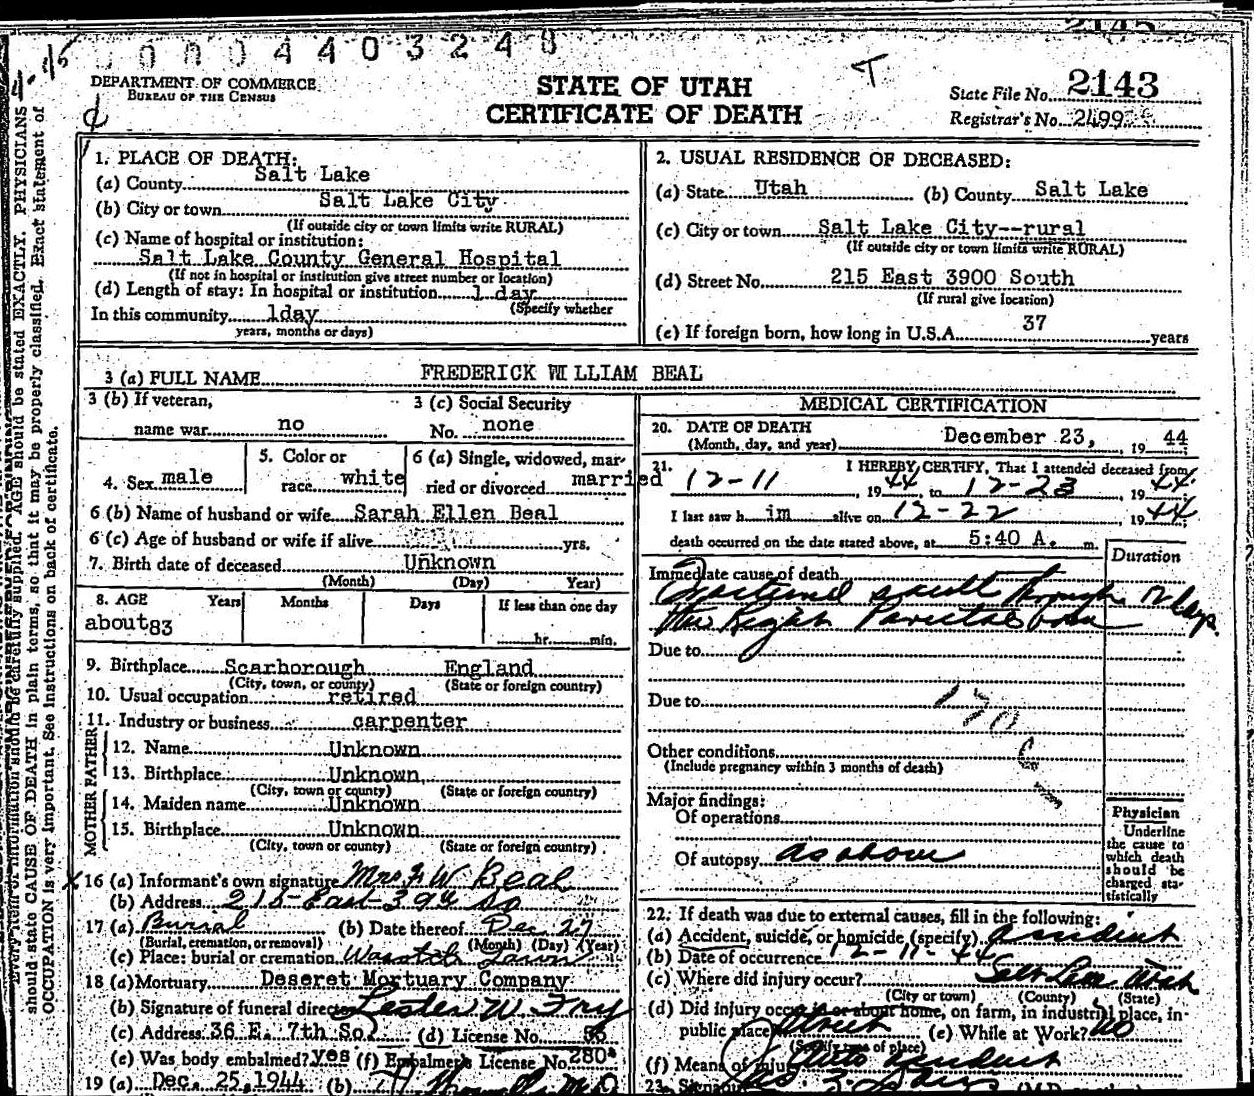 2145
0 0 0 4 4 0 3 2 4 8
4-45
DEPARTMENT OF COMMERCE
BUREAU OF THE CENSUS
STATE OF UTAH
CERTIFICATE OF DEATH
State File No. 2143
Registrar's No. 2499
1. PLACE OF DEATH:
(a) County Salt Lake
(b) City or town Salt Lake City
(If outside city or town limits write RURAL)
(c) Name of hospital or institution:
Salt Lake County General Hospital
(If not in hospital or institution give street number or location)
(d) Length of stay: In hospital or institution 1 day
(Specify whether
In this community 1day
years, months or days)
2. USUAL RESIDENCE OF DECEASED:
(a) State Utah (b) County Salt Lake
(c) City or town Salt Lake City--rural
(If outside city or town limits write RURAL)
(d) Street No. 215 East 3900 South
(If rural give location)
(e) If foreign born, how long in U.S.A. 37 years
3 (a) FULL NAME FREDERICK WILLIAM BEAL
3 (b) If veteran, name war no
3 (c) Social Security No. none
4. Sex male
5. Color or race white
6 (a) Single, widowed, married or divorced married
6 (b) Name of husband or wife Sarah Ellen Beal
6 (c) Age of husband or wife if alive yrs.
7. Birth date of deceased Unknown
(Month) (Day) Year)
8. AGE Years Months Days If less than one day
about 83 hr. min.
9. Birthplace Scarborough England
(City, town, or county) (State or foreign country)
10. Usual occupation retired
11. Industry or business carpenter
FATHER
12. Name Unknown
13. Birthplace Unknown
(City, town or county) (State or foreign country)
MOTHER
14. Maiden name Unknown
15. Birthplace Unknown
(City, town or county) (State or foreign country)
X 16 (a) Informant's own signature Mrs F W Beal
(b) Address 215- East 39th So
17 (a) Burial (b) Date thereof Dec 27
(Burial, cremation, or removal) (Month) (Day) (Year)
(c) Place: burial or cremation Wasatch Lawn
18 (a) Mortuary Deseret Mortuary Company
(b) Signature of funeral director Lester W. Fry
(c) Address 36 E. 7th So. (d) License No.
(e) Was body embalmed? yes (f) Embalmer's License No. 280
19 (a) Dec. 25, 1944 (b) M.D.
MEDICAL CERTIFICATION
20. DATE OF DEATH
(Month, day, and year) December 23, 19 44
21. I HEREBY CERTIFY, That I attended deceased from
12-11, 19 44 to 12-23, 19 44
I last saw h im alive on 12-22 19 44
death occurred on the date stated above, at 5:40 A. m.
Duration
Immediate cause of death
Fractured skull through 12 days
the Right Parietal bone
Due to
Due to
170 c
Other conditions
(Include pregnancy within 3 months of death)
Major findings:
Of operations
Of autopsy as above
Physician
Underline
the cause to
which death
should be
charged statistically
22. If death was due to external causes, fill in the following:
(a) Accident, suicide, or homicide (specify) accident
(b) Date of occurrence 12-11-44
(c) Where did injury occur? Salt Lake Utah
(City or town) (County) (State)
(d) Did injury occur in or about home, on farm, in industrial place, in public place? Street (e) While at Work? No
(Specify type of place)
(f) Means of injury Auto accident
23. Signature
should state CAUSE OF DEATH in plain terms, so that it may be properly classified. Exact statement of
OCCUPATION is very important. See instructions on back of certificate.
Every item of information should be carefully supplied. AGE should be stated EXACTLY. PHYSICIANS